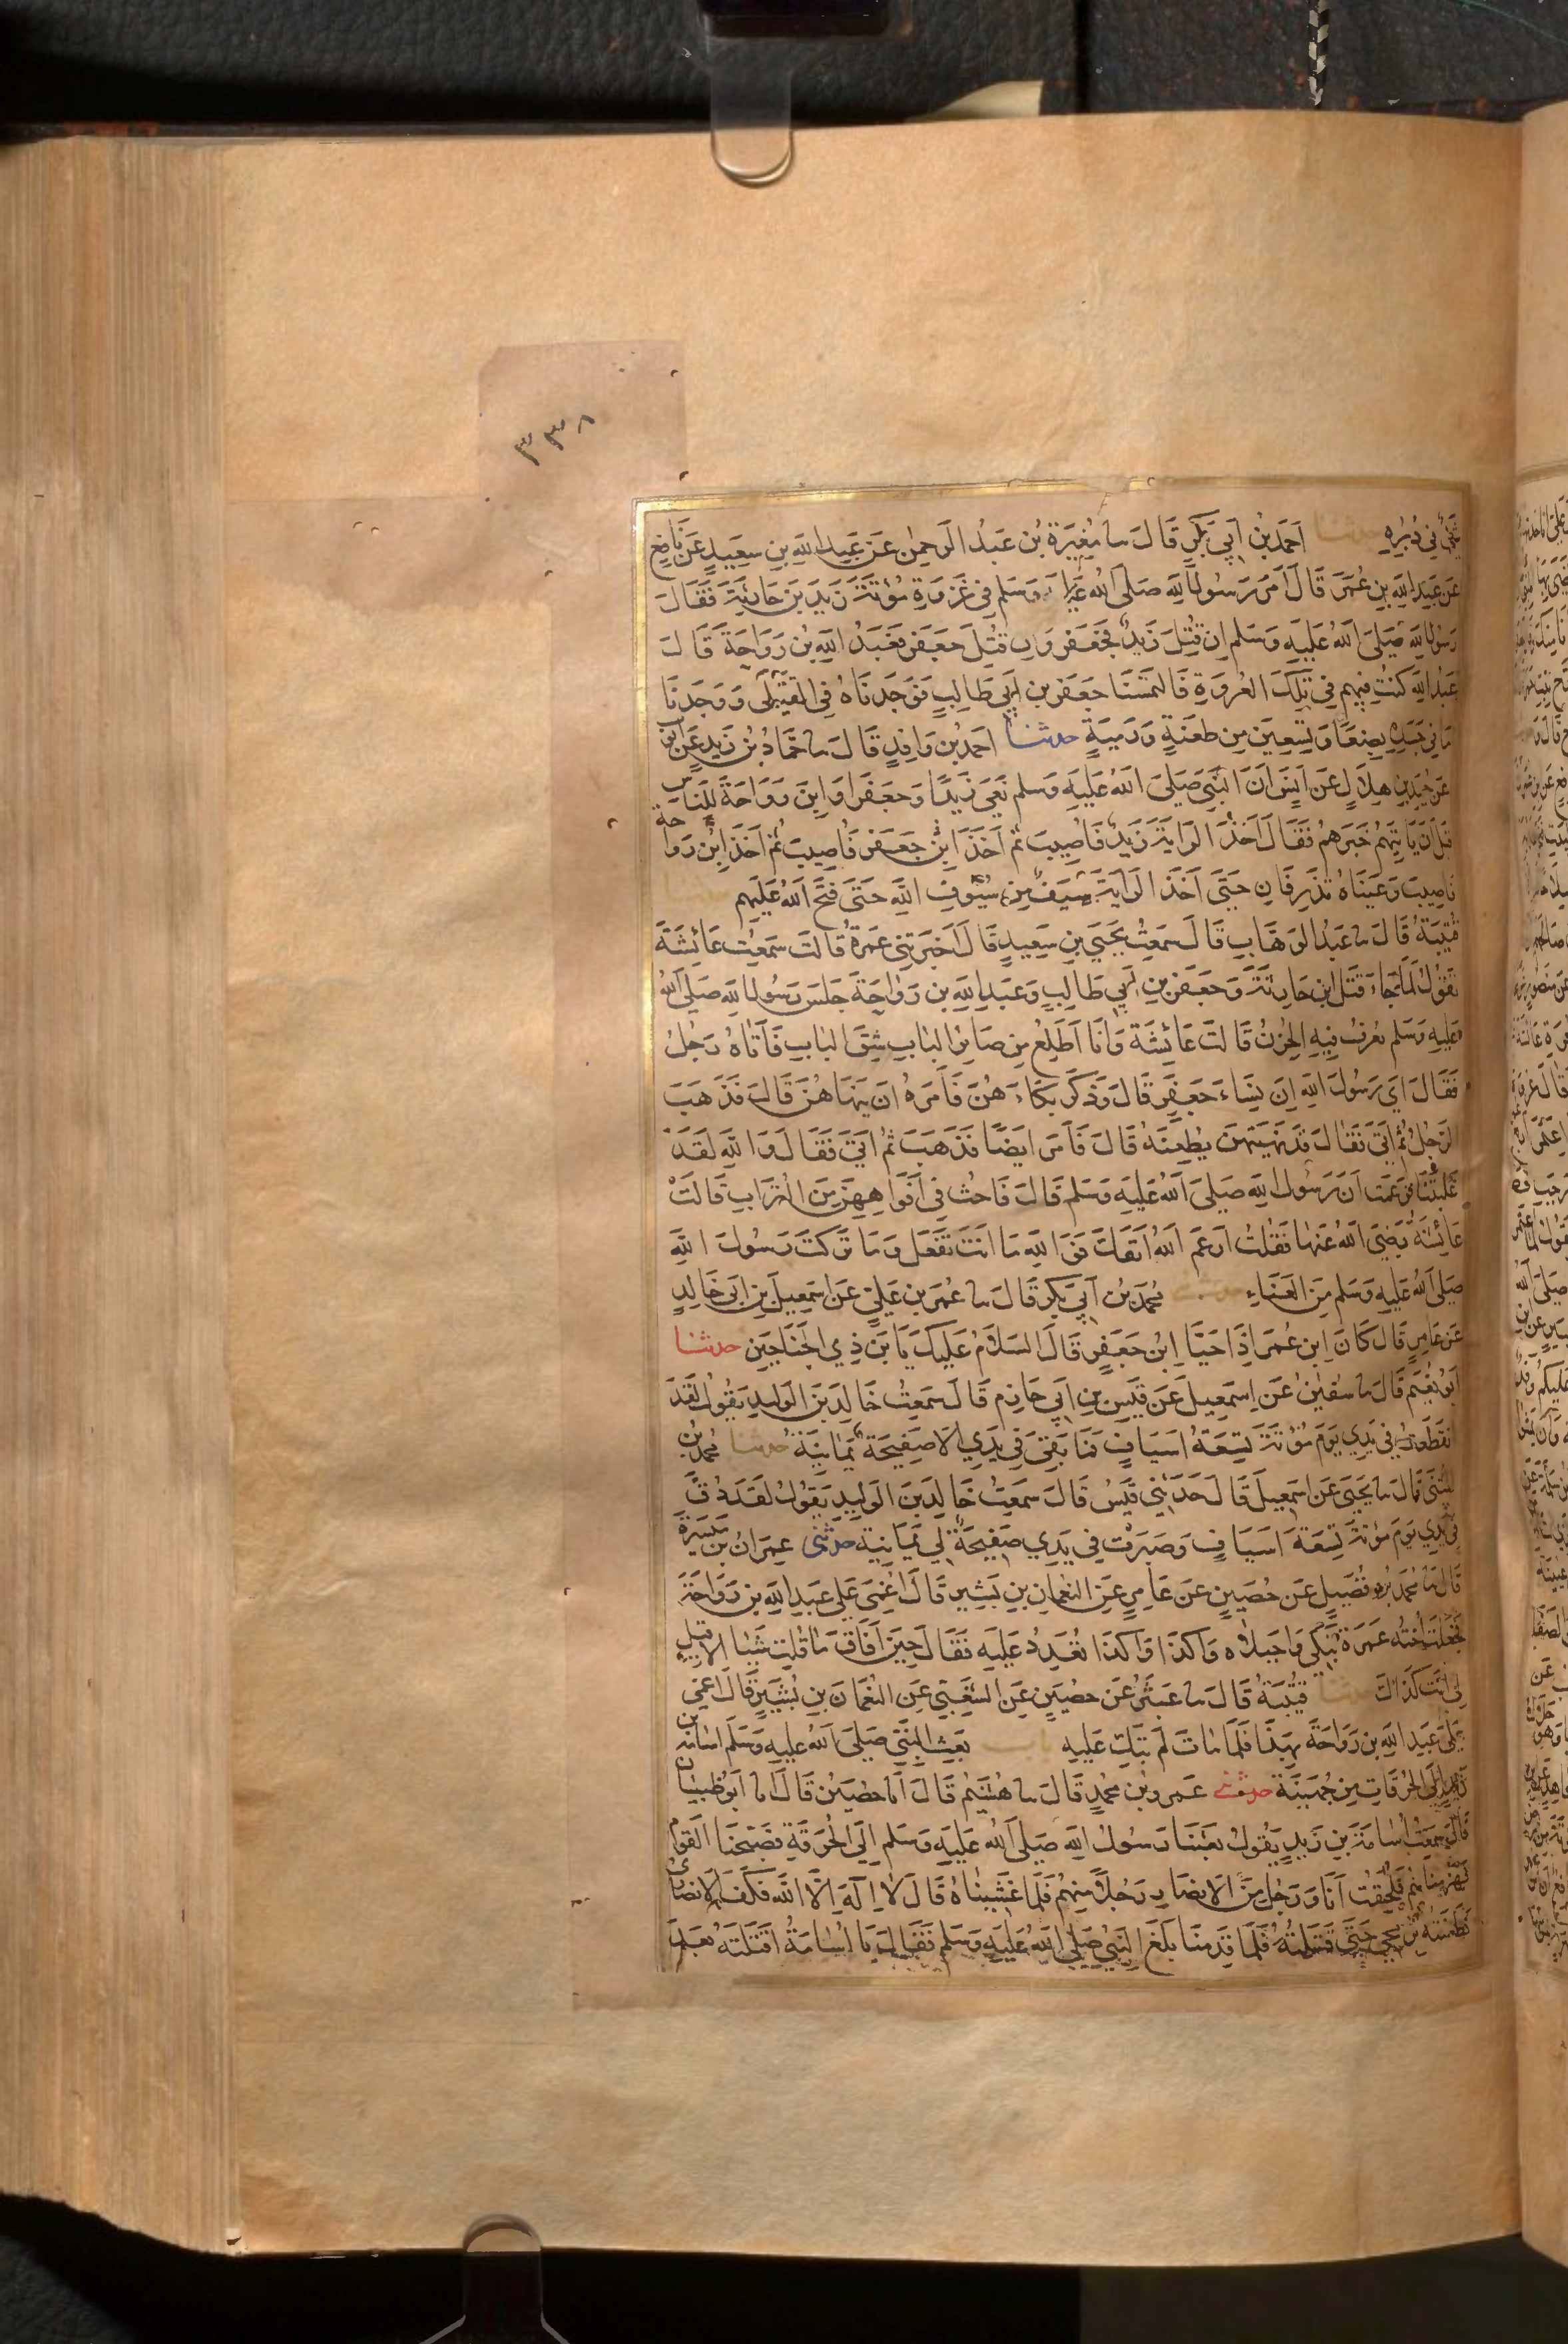 ٣٣٨
شَيْءٌ في دُبُرِهِ حدثنا اَحمَدُ بْنُ اَبِي بَكْرٍ قَالَ سا مُغِيَرَةُ بْنُ عَبْدُ الرَحمنِ عَنْ عَبْدِ اللهِ بنِ سَعِيدٍ عَن نَافِعٍ
عَن عَبدِ اللهِ بنِ عُمَرَ قَالَ اَمَّرَ رَسُولُ اللهِ صَلَى اللهُ عَلَيْهِ وَسَلم في غَزوَةِ مُؤتَةَ زَيدَ بنَ حَارِثَةَ فَقَالَ
رَسُولُ اللهِ صَلَى اللهُ عَلَيهِ وَسَلم اِن قُتِلَ زَيدٌ فَجَعفَرٌ وَاِن قُتِلَ جَعفَرٌ فَعَبدُ اللهِ بنُ رَوَاحَةَ قَالَ
عَبدُ اللهِ كُنتُ فِيهِم فِي تِلكَ الغَزوَةِ فَالتَمَسنَا جَعفَرَ بنَ اَبِي طَالِبٍ فَوَجَدنَاهُ فِي القَتلَى وَوَجَدنَا
مَا فِي جَسَدِهِ بِضعًا وَتِسعِينَ مِن طَعنَةٍ وَرَميَةٍ حدثنا احمَدُ بن وَاقِدٍ قَالَ سا حَمَّادُ بنُ زَيدٍ عَن اَيُّوبَ
عَن حُمَيدِ بنِ هِلَالٍ عَن اَنَسٍ اَنَّ النَّبِيَّ صَلَى اللهُ عَلَيهِ وَسَلم نَعَى زَيدًا وَجَعفَرًا وَابنَ رَوَاحَةَ لِلنَاسِ
قَبلَ اَن يَاتِيَهُم خَبَرُهُم فَقَالَ اَخَذَ الرَايَةَ زَيدٌ فَاُصِيبَ ثُمَّ اَخَذَ ابنُ جَعفَرٍ فَاُصِيبَ ثُمَّ اَخَذَ ابنُ رَوَاحة
فَاُصِيبَ وَعَينَاهُ تَذرِفَانِ حَتَّى اَخَذَ الرَايَةَ سَيفٌ مِن سُيُوفِ اللهِ حَتَّى فَتَحَ اللهُ عَلَيهِم
قُتَيبَةُ قَالَ سا عَبدُ الوَهَّابِ قَالَ سَمِعتُ يَحيَى بنَ سَعِيدٍ قَالَ اَخبَرَتنِي عَمرَةُ قَالَت سَمِعتُ عَائِشَةَ
تَقُولُ لَمَّا جَاءَ قَتلُ ابنِ حَارِثَةَ وَجَعفَرِ بنِ اَبِي طَالِبٍ وَعَبدِ اللهِ بنِ رَوَاحَةَ جَلَسَ رَسُولُ اللهِ صَلَى اللهُ
عَلَيهِ وَسَلم يُعرَفُ فِيهِ الحُزنُ قَالَت عَائِشَةُ وَاَنَا اَطَّلِعُ مِن صَائِرِ البَابِ شِقِّ البَابِ فَاَتَاهُ رَجُلٌ
فَقَالَ اَي رَسُولَ اللهِ اِنَّ نِسَاءَ جَعفَرٍ قَالَ وَذَكَرَ بُكَاءَ هُنَّ فَاَمَرَهُ ان يَنهَاهُنَّ قَالَ فَذَهَبَ
الرَجُلُ ثُمَّ اَتَى فَقَالَ قَد نَهَيتُهُنَّ يُطِعنَهُ قَالَ فَاَمَرَ ايضًا فَذَهَبَ ثُمَّ اَتَى فَقَالَ وَاللهِ لَقَد
غَلَبنَنَا فَزَعَمَت اَنَّ رَسُولَ اللهِ صَلَى اللهُ عَلَيهِ وَسَلم قَالَ فَاحثُ فِي اَفوَاهِهِنَّ مِنَ التُّرَابِ قَالَت
عَائِشَةُ رَضِيَ اللهُ عَنهَا فَقُلتُ اَرغَمَ اللهُ اَنفَكَ فَوَاللهِ مَا اَنتَ تَفعَلُ وَمَا تَرَكتَ رَسُولَ اللهِ
صَلَى اللهُ عَلَيهِ وَسَلم مِنَ العَنَاءِ حدثنا مُحَمَّدُ بنُ اَبِي بَكرٍ قَالَ سا عُمَرُ بنُ عَلِيٍّ عَن اِسمَعِيلَ بنِ اَبِي خَالِدٍ
عَن عَامِرٍ قَالَ كَانَ ابنُ عُمَرَ اِذَا حَيَّا ابنَ جَعفَرٍ قَالَ السَلَامُ عَلَيكَ يَا بنَ ذِي الجَنَاحَينِ حدثنا
اَبُو نُعَيمٍ قَالَ سا سُفيَنُ عَن اِسمَعِيلَ عَن قَيسِ بنِ اَبِي حَازِمٍ قَالَ سَمِعتُ خَالِدَ بنَ الوَلِيدِ يَقُولُ لَقَدَ
انقَطَعَت فِي يَدِي يَومَ مُؤتَةَ تِسعَةُ اَسيَافٍ فَمَا بَقِيَ فِي يَدِي اِلَا صَفِيحَةٌ يَمَانِيَةٌ حدثنا مُحَمَّدُ بنُ
المُثَنَّى قَالَ سا يَحيَى عَن اِسمَعِيلَ قَالَ حَدَثَنِي قَيسٌ قَالَ سَمِعتُ خَالِدَ بنَ الوَلِيدِ يَقُولُ لَقَد دُقَّ
فِي يَدِي يَومَ مُؤتَةَ تِسعَةُ اَسيَافٍ وَصَبَرَت فِي يَدِي صَفِيحَةٌ لِي يَمَانِيَةٌ حدثني عِمرَانُ بن مَيسَرَةَ
قَالَ سا مُحَمَّدُ بنُ فُضَيلٍ عَن حُصَينٍ عَن عَامِرٍ عَنِ النُعمَانِ بنِ بَشِيرٍ قَالَ اُغمِيَ عَلَى عَبدِ اللهِ بنِ رَوَاحَةَ
فَجَعَلَت اُختُهُ عَمرَةُ تَبكِي وَاجَبَلَاه وَاكَذَا وَاكَذَا تُعَدِّدُ عَلَيهِ فَقَالَ حِينَ اَفَاقَ مَا قُلتِ شَيئًا اِلَا قِيلَ
لِي اَنتَ كَذَالكَ حدثنا قُتَيبَةُ قَالَ سا عَبثَرُ عَن حُصَينٍ عَنِ الشَعبِيِّ عَنِ النُعمَانَ بنِ بَشِيرٍ قَالَ اُغمِيَ
عَلَى عَبدِ اللهِ بنِ رَوَاحَةَ بِهَذَا فَلَمَّا مَاتَ لَم تَبكِ عَلَيهِ باب بَعثُ النَبِيِّ صَلَى اللهُ عَلَيهِ وَسَلم اُسَامَة بن
زَيدٍ اِلَى الحُرُقَاتِ مِن جُهَينَةَ حدثني عَمرُو بنُ مُحَمدٍ قَالَ سا هُشَيمٌ قَالَ اَنا حُصَينٌ قَالَ انا اَبُو ظَبيَان
قَالَ سَمِعتُ اُسَامَةَ بنَ زَيدٍ يَقُولُ بَعَثَنَا رَسُولُ اللهِ صَلَى اللهُ عَلَيهِ وَسَلم اِلَى الحُرَقَةِ فَصَبَّحنَا القَومَ
فَهَزَمنَاهُم فَلَحِقتُ اَنَا وَرَجُلٌ مِنَ الاَنصَارِ رَجُلًا مِنهُم فَلَمَّا غَشِينَاهُ قَالَ لَا اِلَهَ اِلَّا اللهُ فَكَفَّ الاَنصَارِي
فَطَعَنتُهُ بِرُمحِي حَتَّى قَتَلتُهُ فَلَمَّا قَدِمنَا بَلَغَ النَبِيَّ صَلَى اللهُ عَلَيهِ وَسَلم فَقَالَ يَا اُسَامَةُ اَقَتَلتَهُ بَعدَ